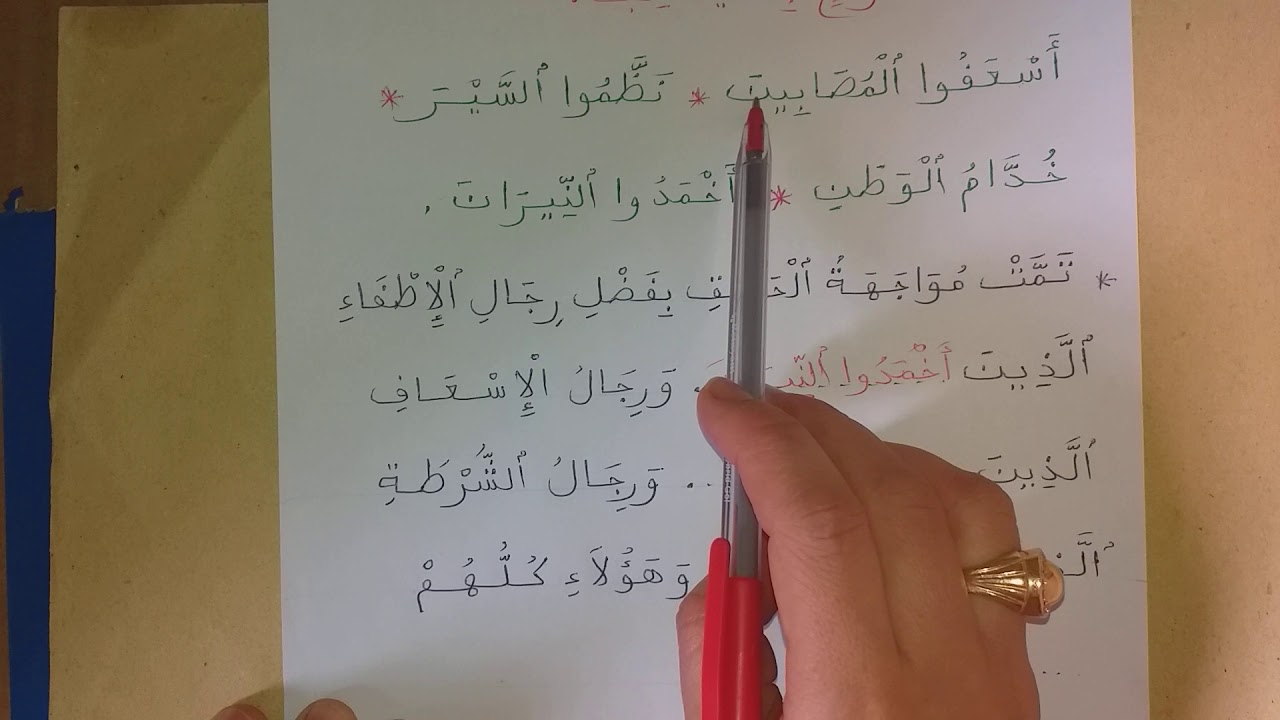 أَسْعَفُوا ٱلْمُصَابِينَ * نَظَّمُوا ٱلسَّيْرَ *
خُدَّامُ ٱلْوَطَنِ * أَخْمَدُوا ٱلنِّيرَانَ .
* تَمَّتْ مُوَاجَهَةُ بِفَضْلِ رِجَالِ ٱلْإِطْفَاءِ
ٱلَّذِينَ أَخْمَدُوا وَرِجَالُ الْإِسْعَافِ
ٱلَّذِينَ .. وَرِجَالُ ٱلشُّرْطَةِ
وَهَؤُلَاءِ كُلُّهُمْ
...